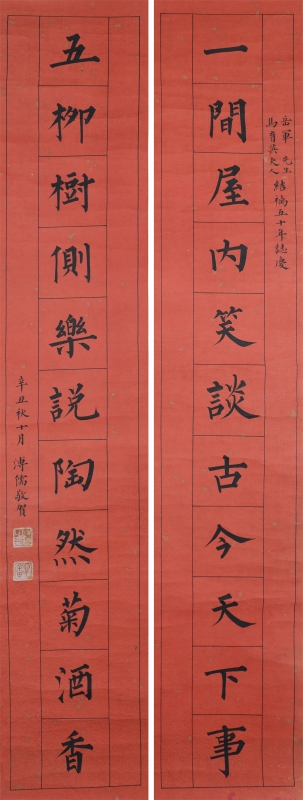 岳軍先生
馬育英夫人 結褵五十年誌慶
一間屋內笑談古今天下事
五柳樹側樂説陶然菊酒香
辛丑秋十月 溥儒敬賀